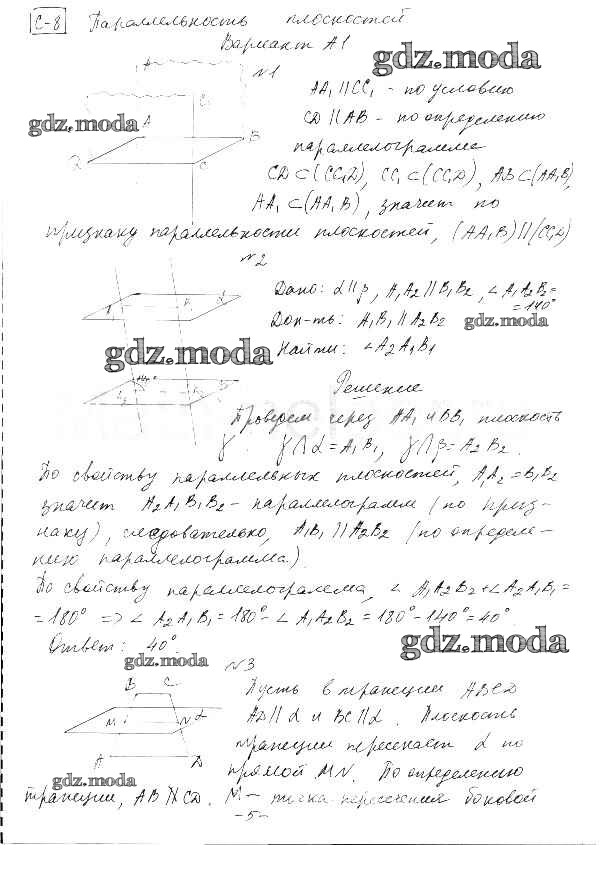 С-8 Параллельность плоскостей
Вариант А1
gdz.moda
№1
AA₁ || CC₁ - по условию
gdz.moda
CD || AB - по определению
параллелограмма
CD ⊂ (CC₁D), CC₁ ⊂ (CC₁D), AB ⊂ (AA₁B),
AA₁ ⊂ (AA₁B), значит по
признаку параллельности плоскостей, (AA₁B) || (CC₁D)
№2
Дано: α || β, A₁A₂ || B₁B₂, ∠A₁A₂B₂ =
= 140°
Док-ть: A₁B₁ || A₂B₂
gdz.moda
gdz.moda
Найти: ∠A₂A₁B₁
Решение
Проведем через AA₁ и BB₁ плоскость
γ. γ ∩ α = A₁B₁, γ ∩ β = A₂B₂.
По свойству параллельных плоскостей, AA₂ = B₁B₂
значит A₂A₁B₁B₂ - параллелограмм (по приз-
наку), следовательно, A₁B₁ || A₂B₂ (по определе-
нию параллелограмма.)
По свойству параллелограмма, ∠A₁A₂B₂ + ∠A₂A₁B₁ =
= 180° => ∠A₂A₁B₁ = 180° - ∠A₁A₂B₂ = 180° - 140° = 40°.
Ответ: 40°.
gdz.moda
gdz.moda
№3
B C
M N α
A D
Пусть в трапеции ABCD
AD || α и BC || α. Плоскость
трапеции пересекает α по
прямой MN. По определению
gdz.moda
трапеции, AB ∦ CD. M - точка пересечения боковой
-5-